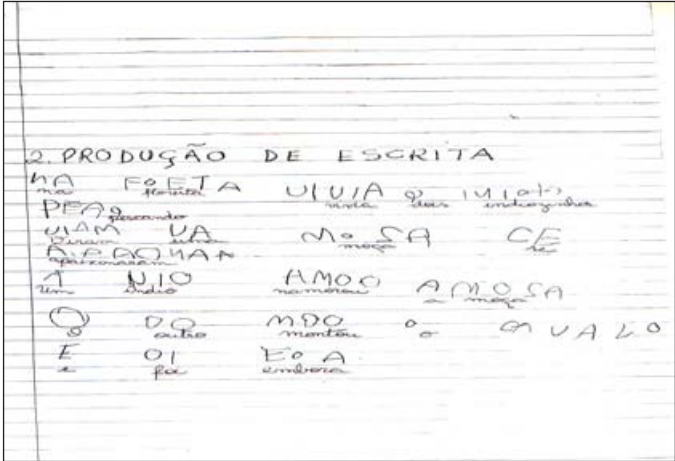 2. PRODUÇÃO DE ESCRITA
NA FOETA UIUIA 2
na floresta vivia dois indiozinhos
PEAO
pescando
UIAM UA MOSA CE
viram uma moça se
apaixonaram
1 NIO AMOO AMOSA
um índio namorou a moça
O DO MDO O AUALO
outro montou o
E OI EOA
e foi embora